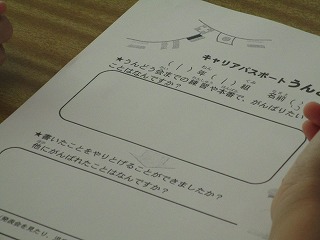 キャリアパスポートうん
( )年( )組 名前(
★うんどう会までの練習や本番で、がんばりたい
ことはなんですか？
★書いたことをやりとげることができましたか？
他にがんばれたことはなんですか？